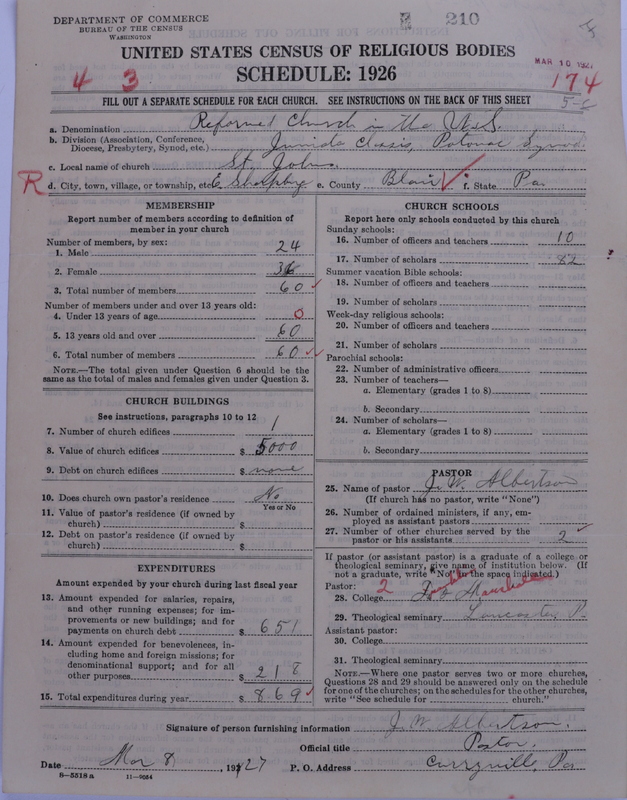 DEPARTMENT OF COMMERCE
BUREAU OF THE CENSUS
WASHINGTON
210
UNITED STATES CENSUS OF RELIGIOUS BODIES
SCHEDULE: 1926
MAR 10 1927
4 3
174
FILL OUT A SEPARATE SCHEDULE FOR EACH CHURCH. SEE INSTRUCTIONS ON THE BACK OF THIS SHEET
a. Denomination Reformed Church in the U.S.
b. Division (Association, Conference, Diocese, Presbytery, Synod, etc.) Juniata Classis, Potomac Synod
c. Local name of church St. Johns
R d. City, town, village, or township, etc. E. Sharpsburg e. County Blair f. State Pa.
MEMBERSHIP
Report number of members according to definition of member in your church
Number of members, by sex:
1. Male 24
2. Female 36
3. Total number of members 60
Number of members under and over 13 years old:
4. Under 13 years of age 0
5. 13 years old and over 60
6. Total number of members 60
NOTE.—The total given under Question 6 should be the same as the total of males and females given under Question 3.
CHURCH BUILDINGS
See instructions, paragraphs 10 to 12
7. Number of church edifices 1
8. Value of church edifices $ 5000
9. Debt on church edifices $ none
10. Does church own pastor's residence No
Yes or No
11. Value of pastor's residence (if owned by church) $
12. Debt on pastor's residence (if owned by church) $
EXPENDITURES
Amount expended by your church during last fiscal year
13. Amount expended for salaries, repairs, and other running expenses; for improvements or new buildings; and for payments on church debt $ 651
14. Amount expended for benevolences, including home and foreign missions; for denominational support; and for all other purposes $ 218
15. Total expenditures during year $ 869
CHURCH SCHOOLS
Report here only schools conducted by this church
Sunday schools:
16. Number of officers and teachers 10
17. Number of scholars 82
Summer vacation Bible schools:
18. Number of officers and teachers
19. Number of scholars
Week-day religious schools:
20. Number of officers and teachers
21. Number of scholars
Parochial schools:
22. Number of administrative officers
23. Number of teachers—
a. Elementary (grades 1 to 8)
b. Secondary
24. Number of scholars—
a. Elementary (grades 1 to 8)
b. Secondary
PASTOR
25. Name of pastor J. W. Albertson
(If church has no pastor, write "None")
26. Number of ordained ministers, if any, employed as assistant pastors
27. Number of other churches served by the pastor or his assistants 2
If pastor (or assistant pastor) is a graduate of a college or theological seminary, give name of institution below. (If not a graduate, write "No" in the space indicated.)
Pastor:
28. College 2 Franklin & Marshall
29. Theological seminary Lancaster P
Assistant pastor:
30. College
31. Theological seminary
NOTE.—Where one pastor serves two or more churches, Questions 28 and 29 should be answered only on the schedule for one of the churches; on the schedules for the other churches, write "See schedule for church."
Signature of person furnishing information J. W. Albertson.
Official title Pastor.
Date Mar 8, 1927 P. O. Address Curryville, Pa
8-5518 a 11-9064